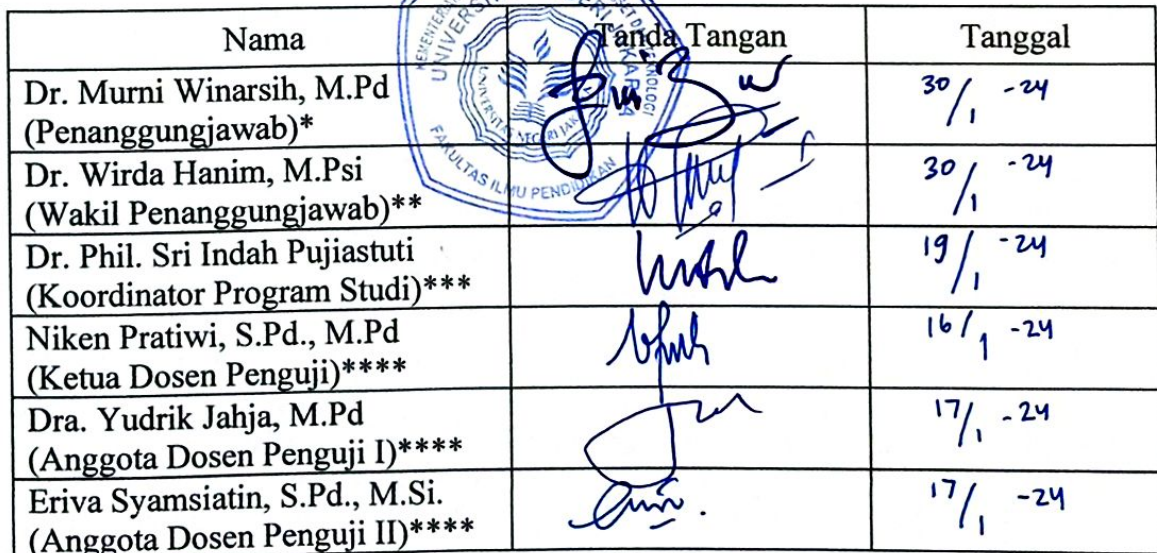 Nama Tanda Tangan Tanggal
Dr. Murni Winarsih, M.Pd
(Penanggungjawab)*
30/1 -24
Dr. Wirda Hanim, M.Psi
(Wakil Penanggungjawab)**
30/1 -24
Dr. Phil. Sri Indah Pujiastuti
(Koordinator Program Studi)***
19/1 -24
Niken Pratiwi, S.Pd., M.Pd
(Ketua Dosen Penguji)****
16/1 -24
Dra. Yudrik Jahja, M.Pd
(Anggota Dosen Penguji I)****
17/1 -24
Eriva Syamsiatin, S.Pd., M.Si.
(Anggota Dosen Penguji II)****
17/1 -24
FAKULTAS ILMU PENDIDIKAN